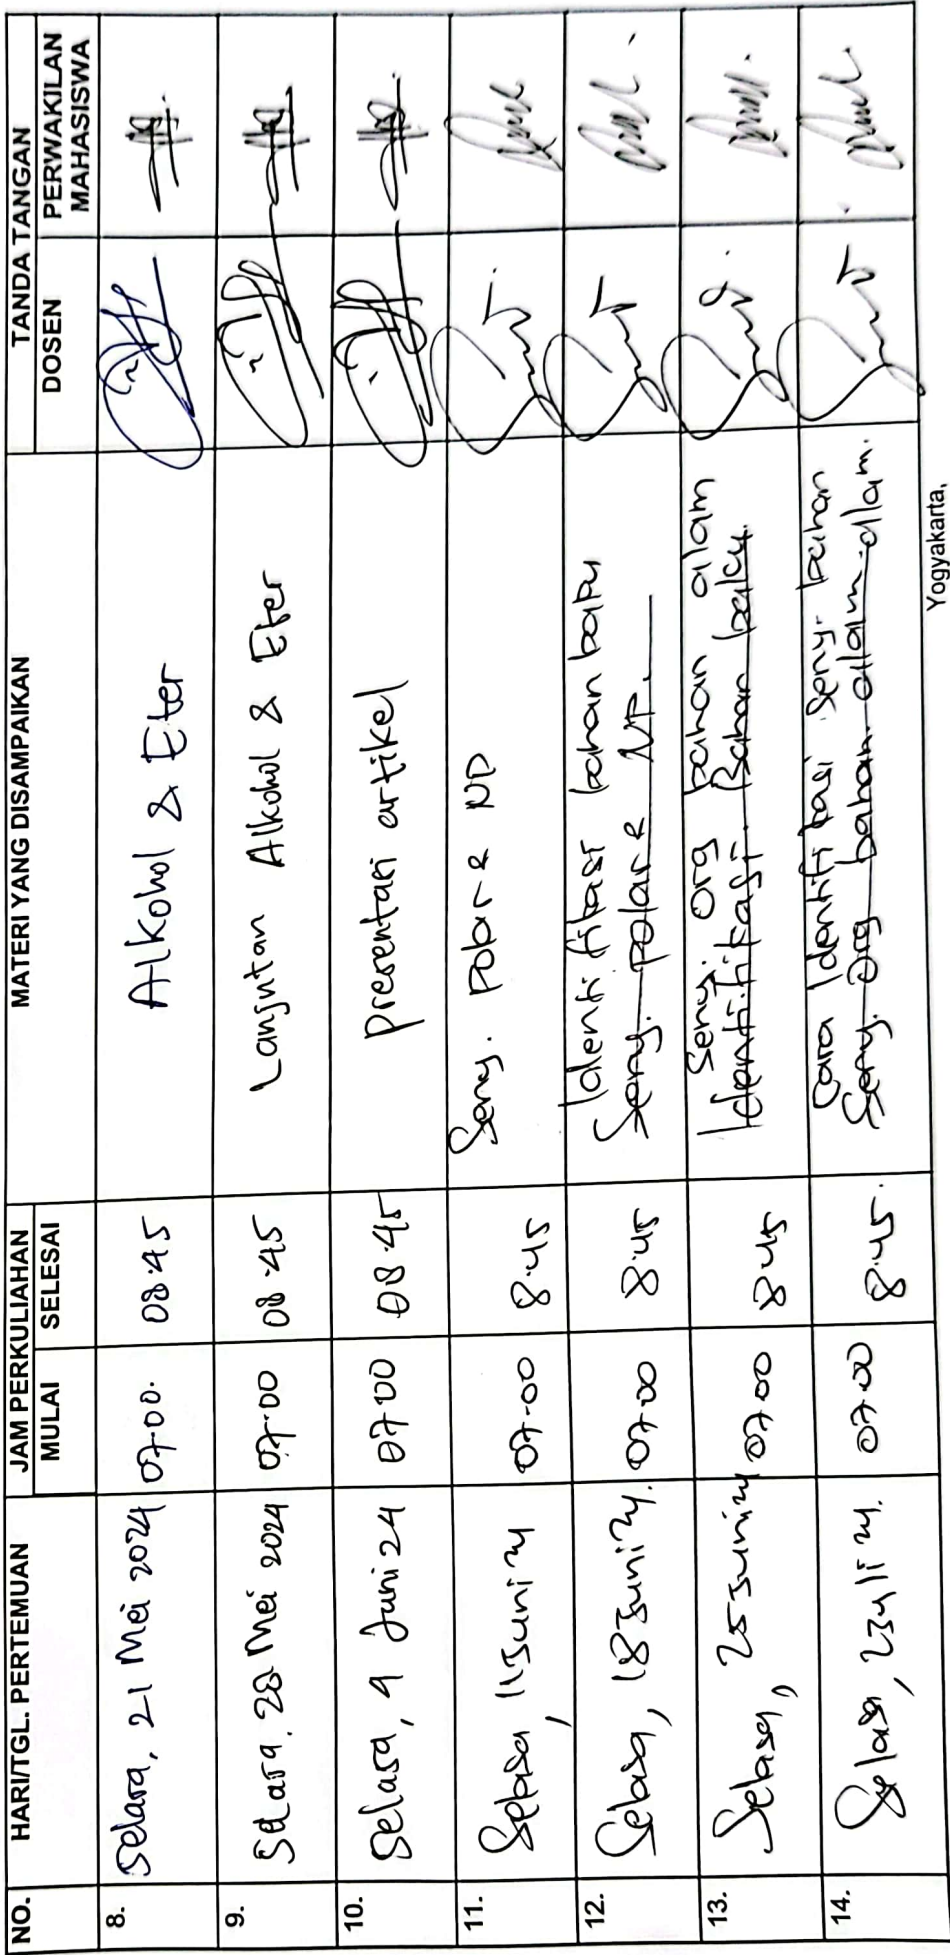 NO. HARI/TGL. PERTEMUAN JAM PERKULIAHAN MATERI YANG DISAMPAIKAN TANDA TANGAN
MULAI SELESAI DOSEN PERWAKILAN MAHASISWA
8. Selasa, 21 Mei 2024 07.00. 08.45 Alkohol & Eter
9. Selasa, 28 Mei 2024 07.00 08.45 Lanjutan Alkohol & Eter
10. Selasa, 4 Juni 24 07.00 08.45 presentasi artikel
11. Selasa, 11 Juni 24 07.00 8.45 Seny. Polar & NP
12. Selasa, 18 Juni 24. 07.00 8.45 Identifikasi bahan baku
Seny. polar & NP.
13. Selasa, 25 Juni 24 07.00 8.45 Seny. Org bahan alam
Identifikasi Bahan baku.
14. Selasa, 2 Juli 24. 07.00 8.45. Cara Identifikasi seny. bahan
Seny. org bahan alam alam.
Yogyakarta,